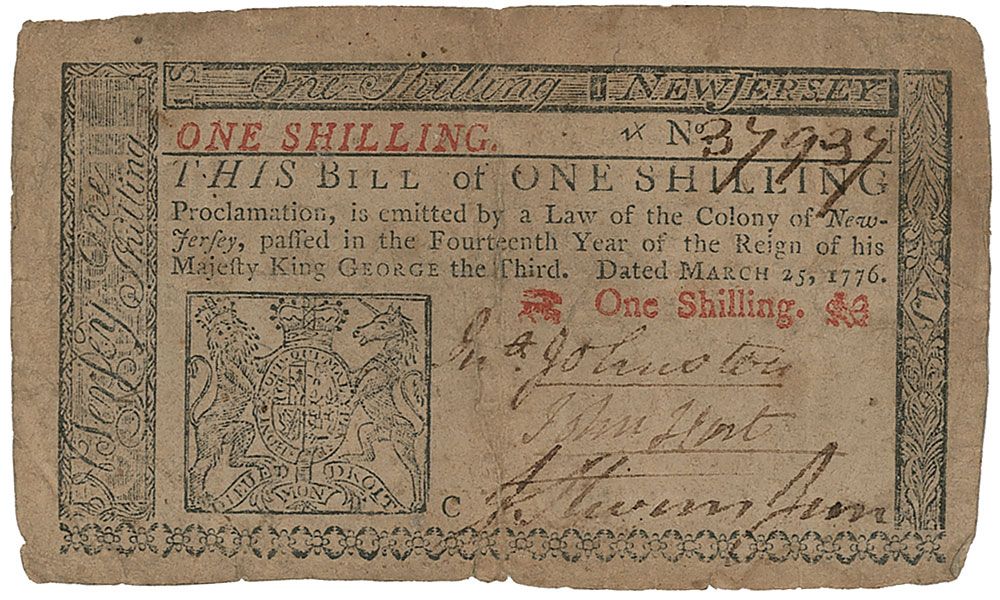 One Shilling NEW JERSEY
ONE SHILLING. No 37937
THIS BILL of ONE SHILLING
Proclamation, is emitted by a Law of the Colony of New-
Jerſey, paſſed in the Fourteenth Year of the Reign of his
Majeſty King GEORGE the Third. Dated MARCH 25, 1776.
One Shilling.
Jno. Johnston
John Hart
J. Stevens Jun
C
N Jerſey One
Shilling
HONI SOIT QUI MAL Y
DIEU ET MON DROIT